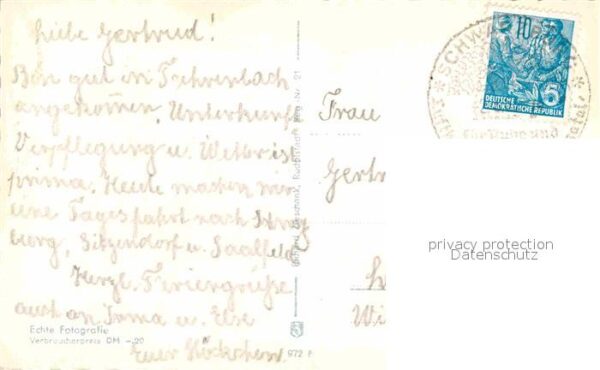 Liebe Gertrud!
Bin gut in
angekommen. Unterkunft
Verpflegung u. Wetter ist
prima. Heute machen wir
eine Tagesfahrt nach
burg, Sitzendorf u. Saalfeld.
Herzl. Feriengrüße
auch an Irma u. Else
Euer
Echte Fotografie
Verbraucherpreis DM -,20
972
Rudolstadt
Nr. 21
Frau
Gertr
Wi
10
SCHWAR
DEUTSCHE
DEMOKRATISCHE REPUBLIK
5
privacy protection
Datenschutz